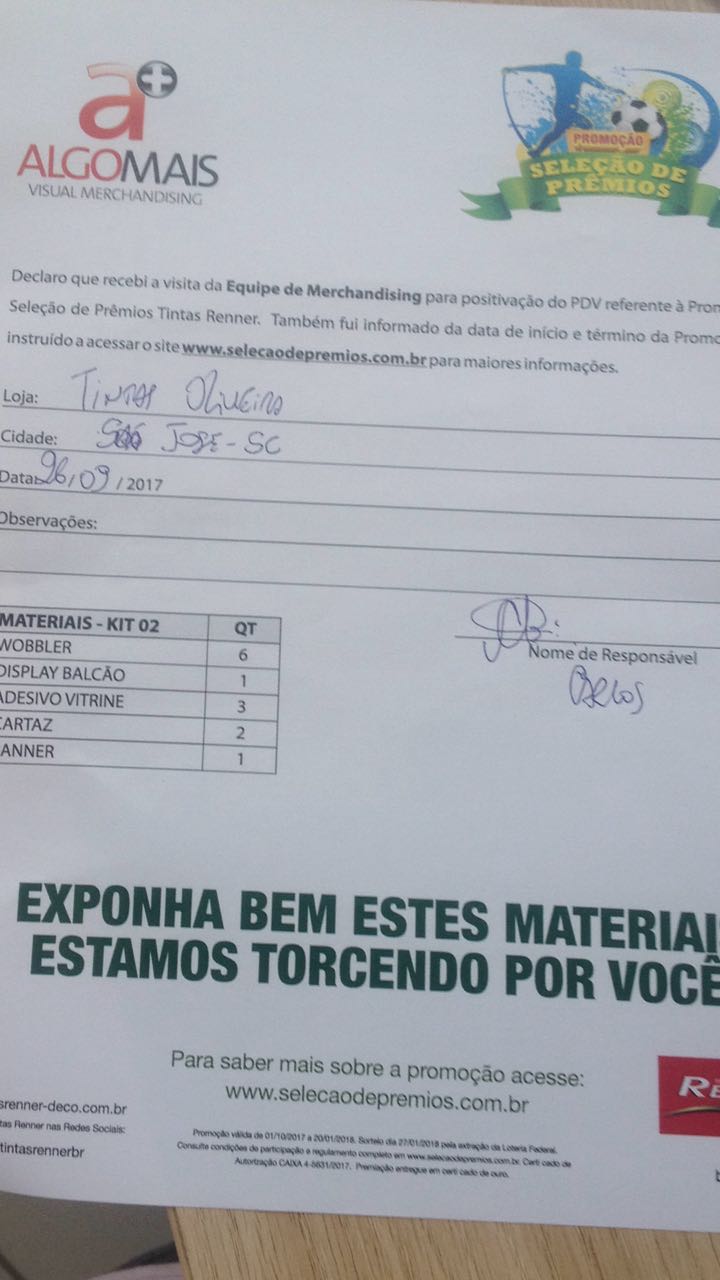 a+
ALGOMAIS
VISUAL MERCHANDISING
PROMOÇÃO
SELEÇÃO DE
PRÊMIOS
Declaro que recebi a visita da Equipe de Merchandising para positivação do PDV referente à Prom
Seleção de Prêmios Tintas Renner. Também fui informado da data de início e término da Promo
instruído a acessar o site www.selecaodepremios.com.br para maiores informações.
Loja: Tintas Oliveira
Cidade: São José-SC
Data: 26/09/2017
Observações:
MATERIAIS - KIT 02 QT
WOBBLER 6
DISPLAY BALCÃO 1
ADESIVO VITRINE 3
CARTAZ 2
ANNER 1
Nome de Responsável
EXPONHA BEM ESTES MATERIAI
ESTAMOS TORCENDO POR VOCÊ
Para saber mais sobre a promoção acesse:
www.selecaodepremios.com.br
srenner-deco.com.br
tas Renner nas Redes Sociais:
tintasrennerbr
RE
Promoção válida de 01/10/2017 a 20/01/2018. Sorteio dia 27/01/2018 pela extração da Loteria Federal.
Consulte condições de participação e regulamento completo em www.selecaodepremios.com.br. Certi cado de
Autortração CAIXA 4-5631/2017. Premiação entregue em certi cado de ouro.